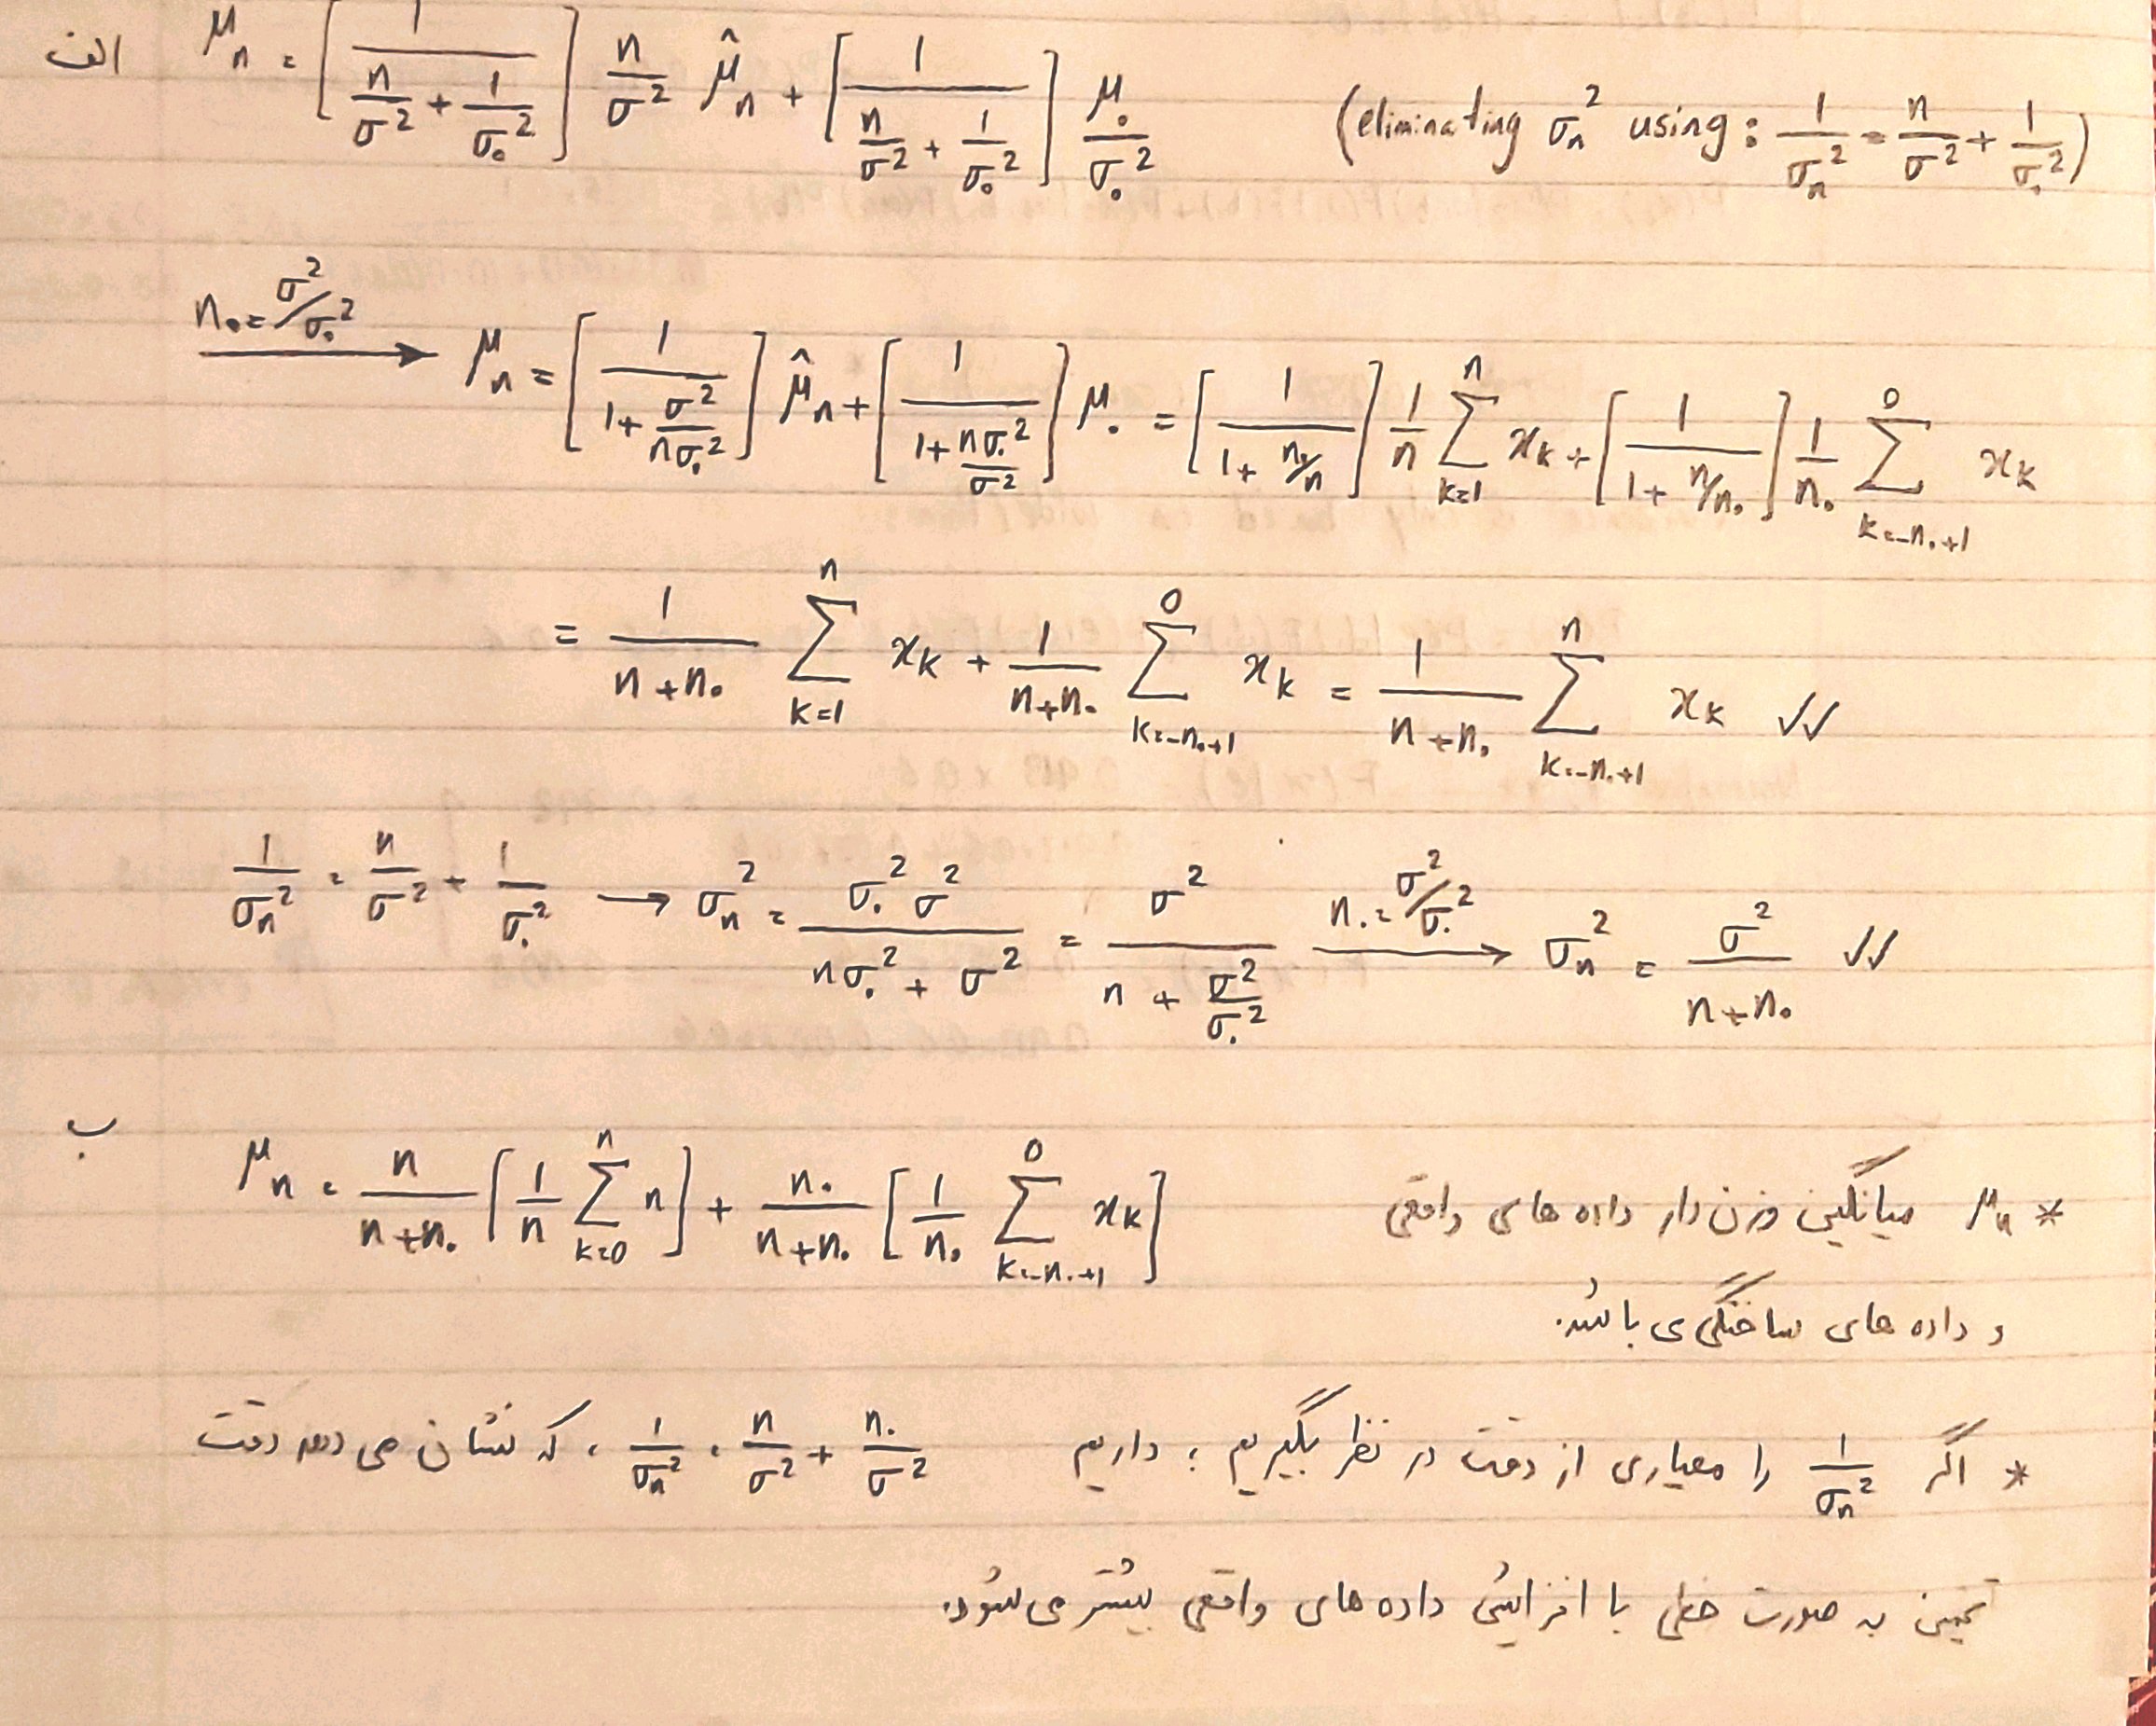 الف μₙ = [1 / (n/σ² + 1/σ₀²)] n/σ² μ̂ₙ + [1 / (n/σ² + 1/σ₀²)] μ₀/σ₀² (eliminating σₙ² using: 1/σₙ² = n/σ² + 1/σ₀²)
n₀ = σ²/σ₀² → μₙ = [1 / (1 + σ²/(nσ₀²))] μ̂ₙ + [1 / (1 + nσ₀²/σ²)] μ₀ = [1 / (1 + n₀/n)] 1/n Σ_{k=1}^{n} xₖ + [1 / (1 + n/n₀)] 1/n₀ Σ_{k=-n₀+1}^{0} xₖ
= 1/(n+n₀) Σ_{k=1}^{n} xₖ + 1/(n+n₀) Σ_{k=-n₀+1}^{0} xₖ = 1/(n+n₀) Σ_{k=-n₀+1}^{n} xₖ ✓✓
1/σₙ² = n/σ² + 1/σ₀² → σₙ² = σ₀²σ² / (nσ₀² + σ²) = σ² / (n + σ²/σ₀²) n₀ = σ²/σ₀² → σₙ² = σ²/(n+n₀) ✓✓
ب μₙ = n/(n+n₀) [1/n Σ_{k=0}^{n} n] + n₀/(n+n₀) [1/n₀ Σ_{k=-n₀+1}^{0} xₖ]
* μₙ میانگین وزن دار داده های واقعی
و داده های ساختگی می باشد.
* اگر 1/σₙ² را معیاری از دقت در نظر بگیریم ؛ داریم 1/σₙ² = n/σ² + n₀/σ² ، که نشان می دهد دقت
تخمین به صورت خطی با افزایش داده های واقعی بیشتر می شود.